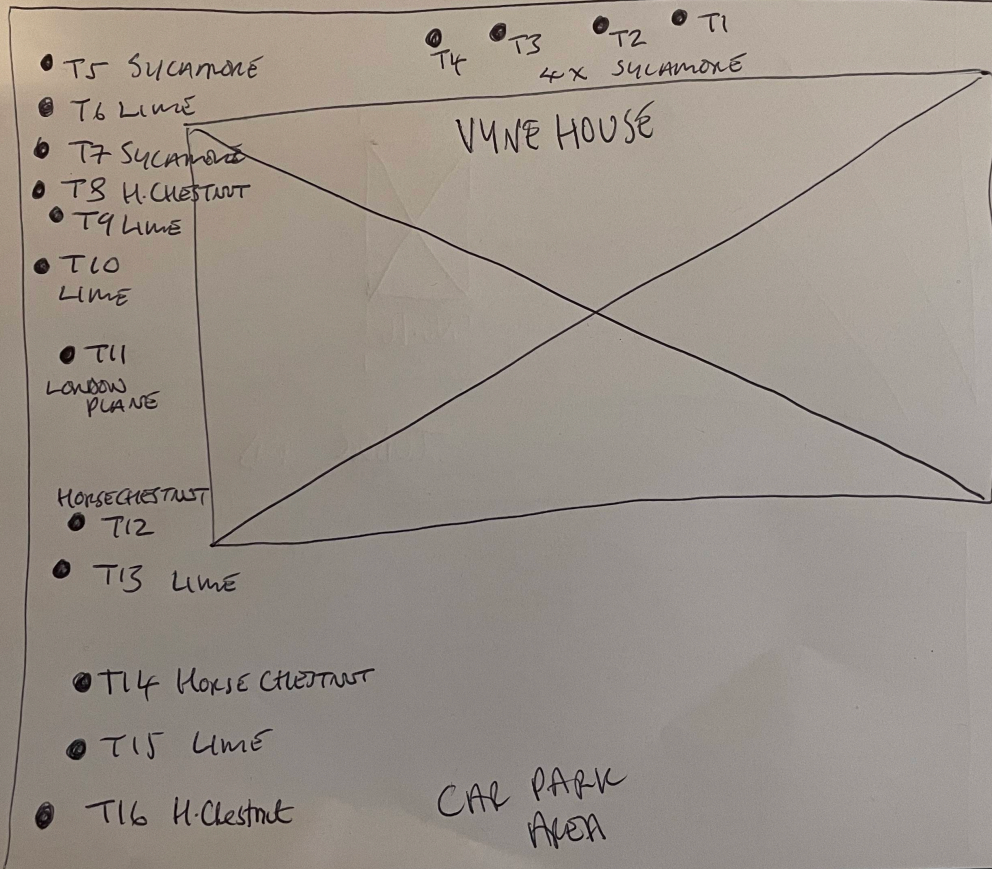 T4
T3
T2
T1
4x SYCAMORE
T5 SYCAMORE
T6 LIME
VYNE HOUSE
T7 SYCAMORE
T8 H.CHESTNUT
T9 LIME
T10
LIME
T11
LONDON
PLANE
HORSECHESTNUT
T12
T13 LIME
T14 HORSE CHESTNUT
T15 LIME
T16 H.Chestnut
CAR PARK
AREA